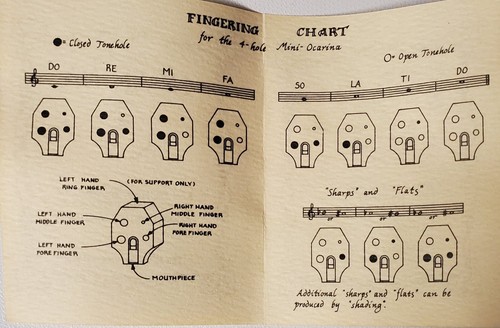 FINGERING CHART
for the 4-hole Mini-Ocarina
= Closed Tonehole
O= Open Tonehole
DO RE MI FA
SO LA TI DO
LEFT HAND
RING FINGER
(FOR SUPPORT ONLY)
LEFT HAND
MIDDLE FINGER
RIGHT HAND
MIDDLE FINGER
RIGHT HAND
FOREFINGER
LEFT HAND
FOREFINGER
MOUTHPIECE
"Sharps" and "Flats"
or or or
Additional "sharps" and "flats" can be
produced by "shading".